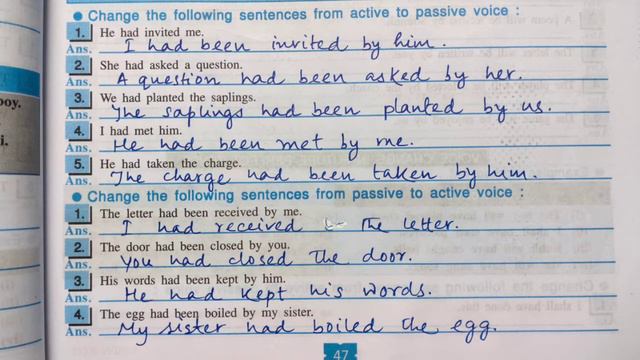 ● Change the following sentences from active to passive voice :
1. He had invited me.
Ans. I had been invited by him.
2. She had asked a question.
Ans. A question had been asked by her.
3. We had planted the saplings.
Ans. The saplings had been planted by us.
4. I had met him.
Ans. He had been met by me.
5. He had taken the charge.
Ans. The charge had been taken by him.
● Change the following sentences from passive to active voice :
1. The letter had been received by me.
Ans. I had received the letter.
2. The door had been closed by you.
Ans. You had closed the door.
3. His words had been kept by him.
Ans. He had kept his words.
4. The egg had been boiled by my sister.
Ans. My sister had boiled the egg.
47